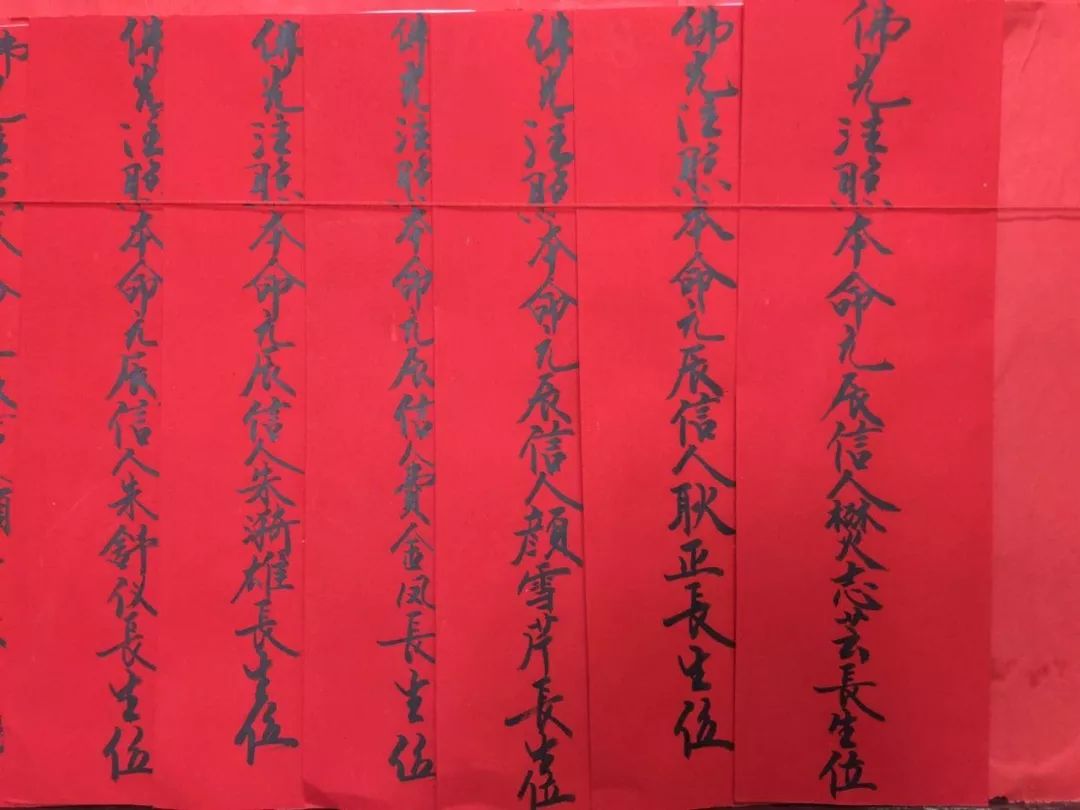 佛光注照本命元辰信人樊志芸長生位
佛光注照本命元辰信人耿正長生位
佛光注照本命元辰信人顔雪芹長生位
佛光注照本命元辰信人費金凤長生位
佛光注照本命元辰信人朱漪雄長生位
佛光注照本命元辰信人朱舒仪長生位